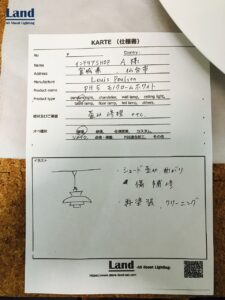 Land
All About Lighting
KARTE (仕様書)
No
Country:
Name インテリアSHOP A 様
Address 宮城県 仙台市
Manufacture Louis Poulsen
Product name PH5 モノクロームホワイト
Product type pendant light, chandelier, wall lamp, ceiling light,
table lamp, floor lamp, led lamp, others.
歪み修理 etc.
修理, 仕様変更, カスタム,
その他
イラスト
・シェード歪み 曲がり
傷 補修
・再塗装, クリーニング
Land All About Lighting